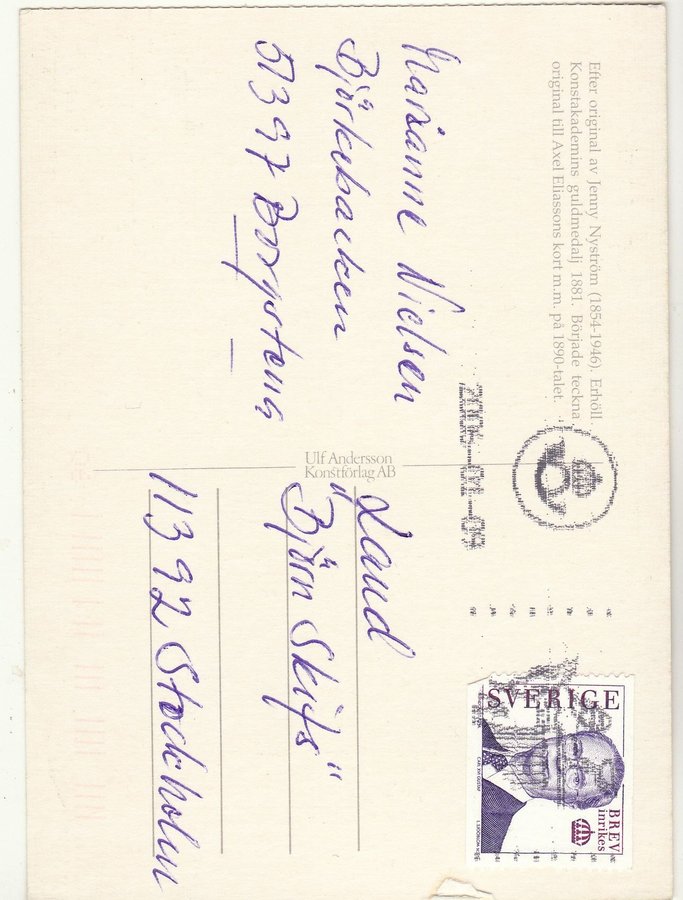 Efter original av Jenny Nyström (1854-1946). Erhöll
Konstakademins guldmedalj 1881. Började teckna
original till Axel Eliassons kort m.m. på 1890-talet.
Marianne Nielsen
Björkebacken
51397 Borgstena
Ulf Andersson
Konstförlag AB
Land
"Björn Skifs"
11392 Stockholm
SVERIGE
BREV
inrikes